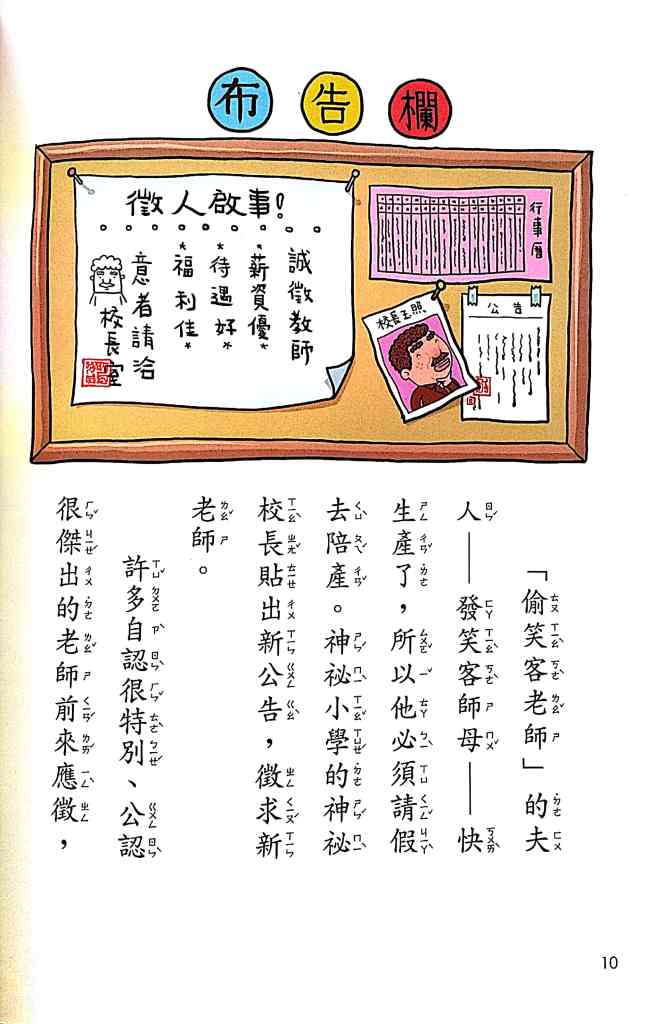 布告欄
徵人啟事!
誠徵教師
*薪資優*
*待遇好*
*福利佳*
意者請洽
校長室
行事曆
校長玉照
公告
「偷笑客老師」的夫
人——發笑客師母——快
生產了,所以他必須請假
去陪產。神祕小學的神祕
校長貼出新公告,徵求新
老師。
許多自認很特別、公認
很傑出的老師前來應徵,
10